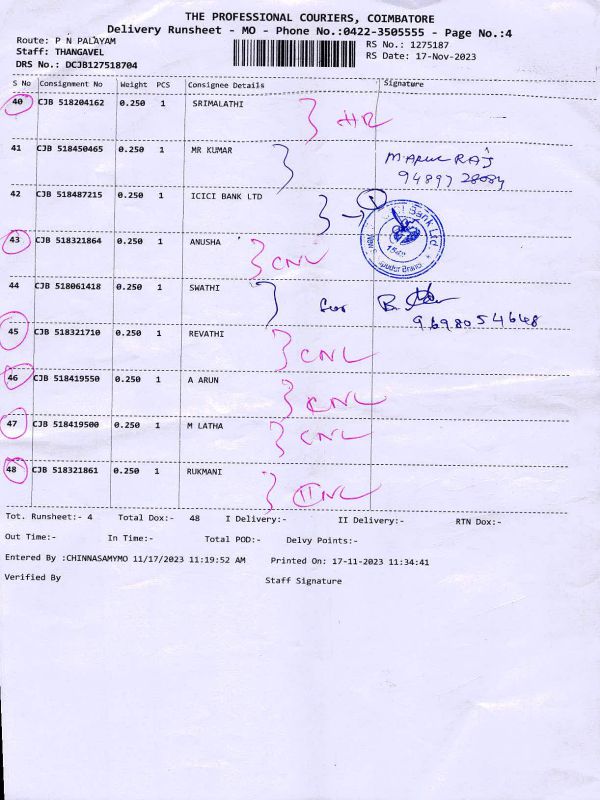 THE PROFESSIONAL COURIERS, COIMBATORE
Delivery Runsheet - MO - Phone No.:0422-3505555 - Page No.:4
Route: P N PALAYAM
RS No.: 1275187
Staff: THANGAVEL
RS Date: 17-Nov-2023
DRS No.: DCJB127518704
S No Consignment No Weight PCS Consignee Details Signature
40 CJB 518204162 0.250 1 SRIMALATHI
41 CJB 518450465 0.250 1 MR KUMAR
94897 28084
42 CJB 518487215 0.250 1 ICICI BANK LTD
43 CJB 518321864 0.250 1 ANUSHA CNL
44 CJB 518061418 0.250 1 SWATHI
9698054648
45 CJB 518321710 0.250 1 REVATHI CNL
46 CJB 518419550 0.250 1 A ARUN CNL
47 CJB 518419500 0.250 1 M LATHA CNL
48 CJB 518321861 0.250 1 RUKMANI
Tot. Runsheet:- 4 Total Dox:- 48 I Delivery:- II Delivery:- RTN Dox:-
Out Time:- In Time:- Total POD:- Delvy Points:-
Entered By :CHINNASAMYMO 11/17/2023 11:19:52 AM Printed On: 17-11-2023 11:34:41
Verified By Staff Signature